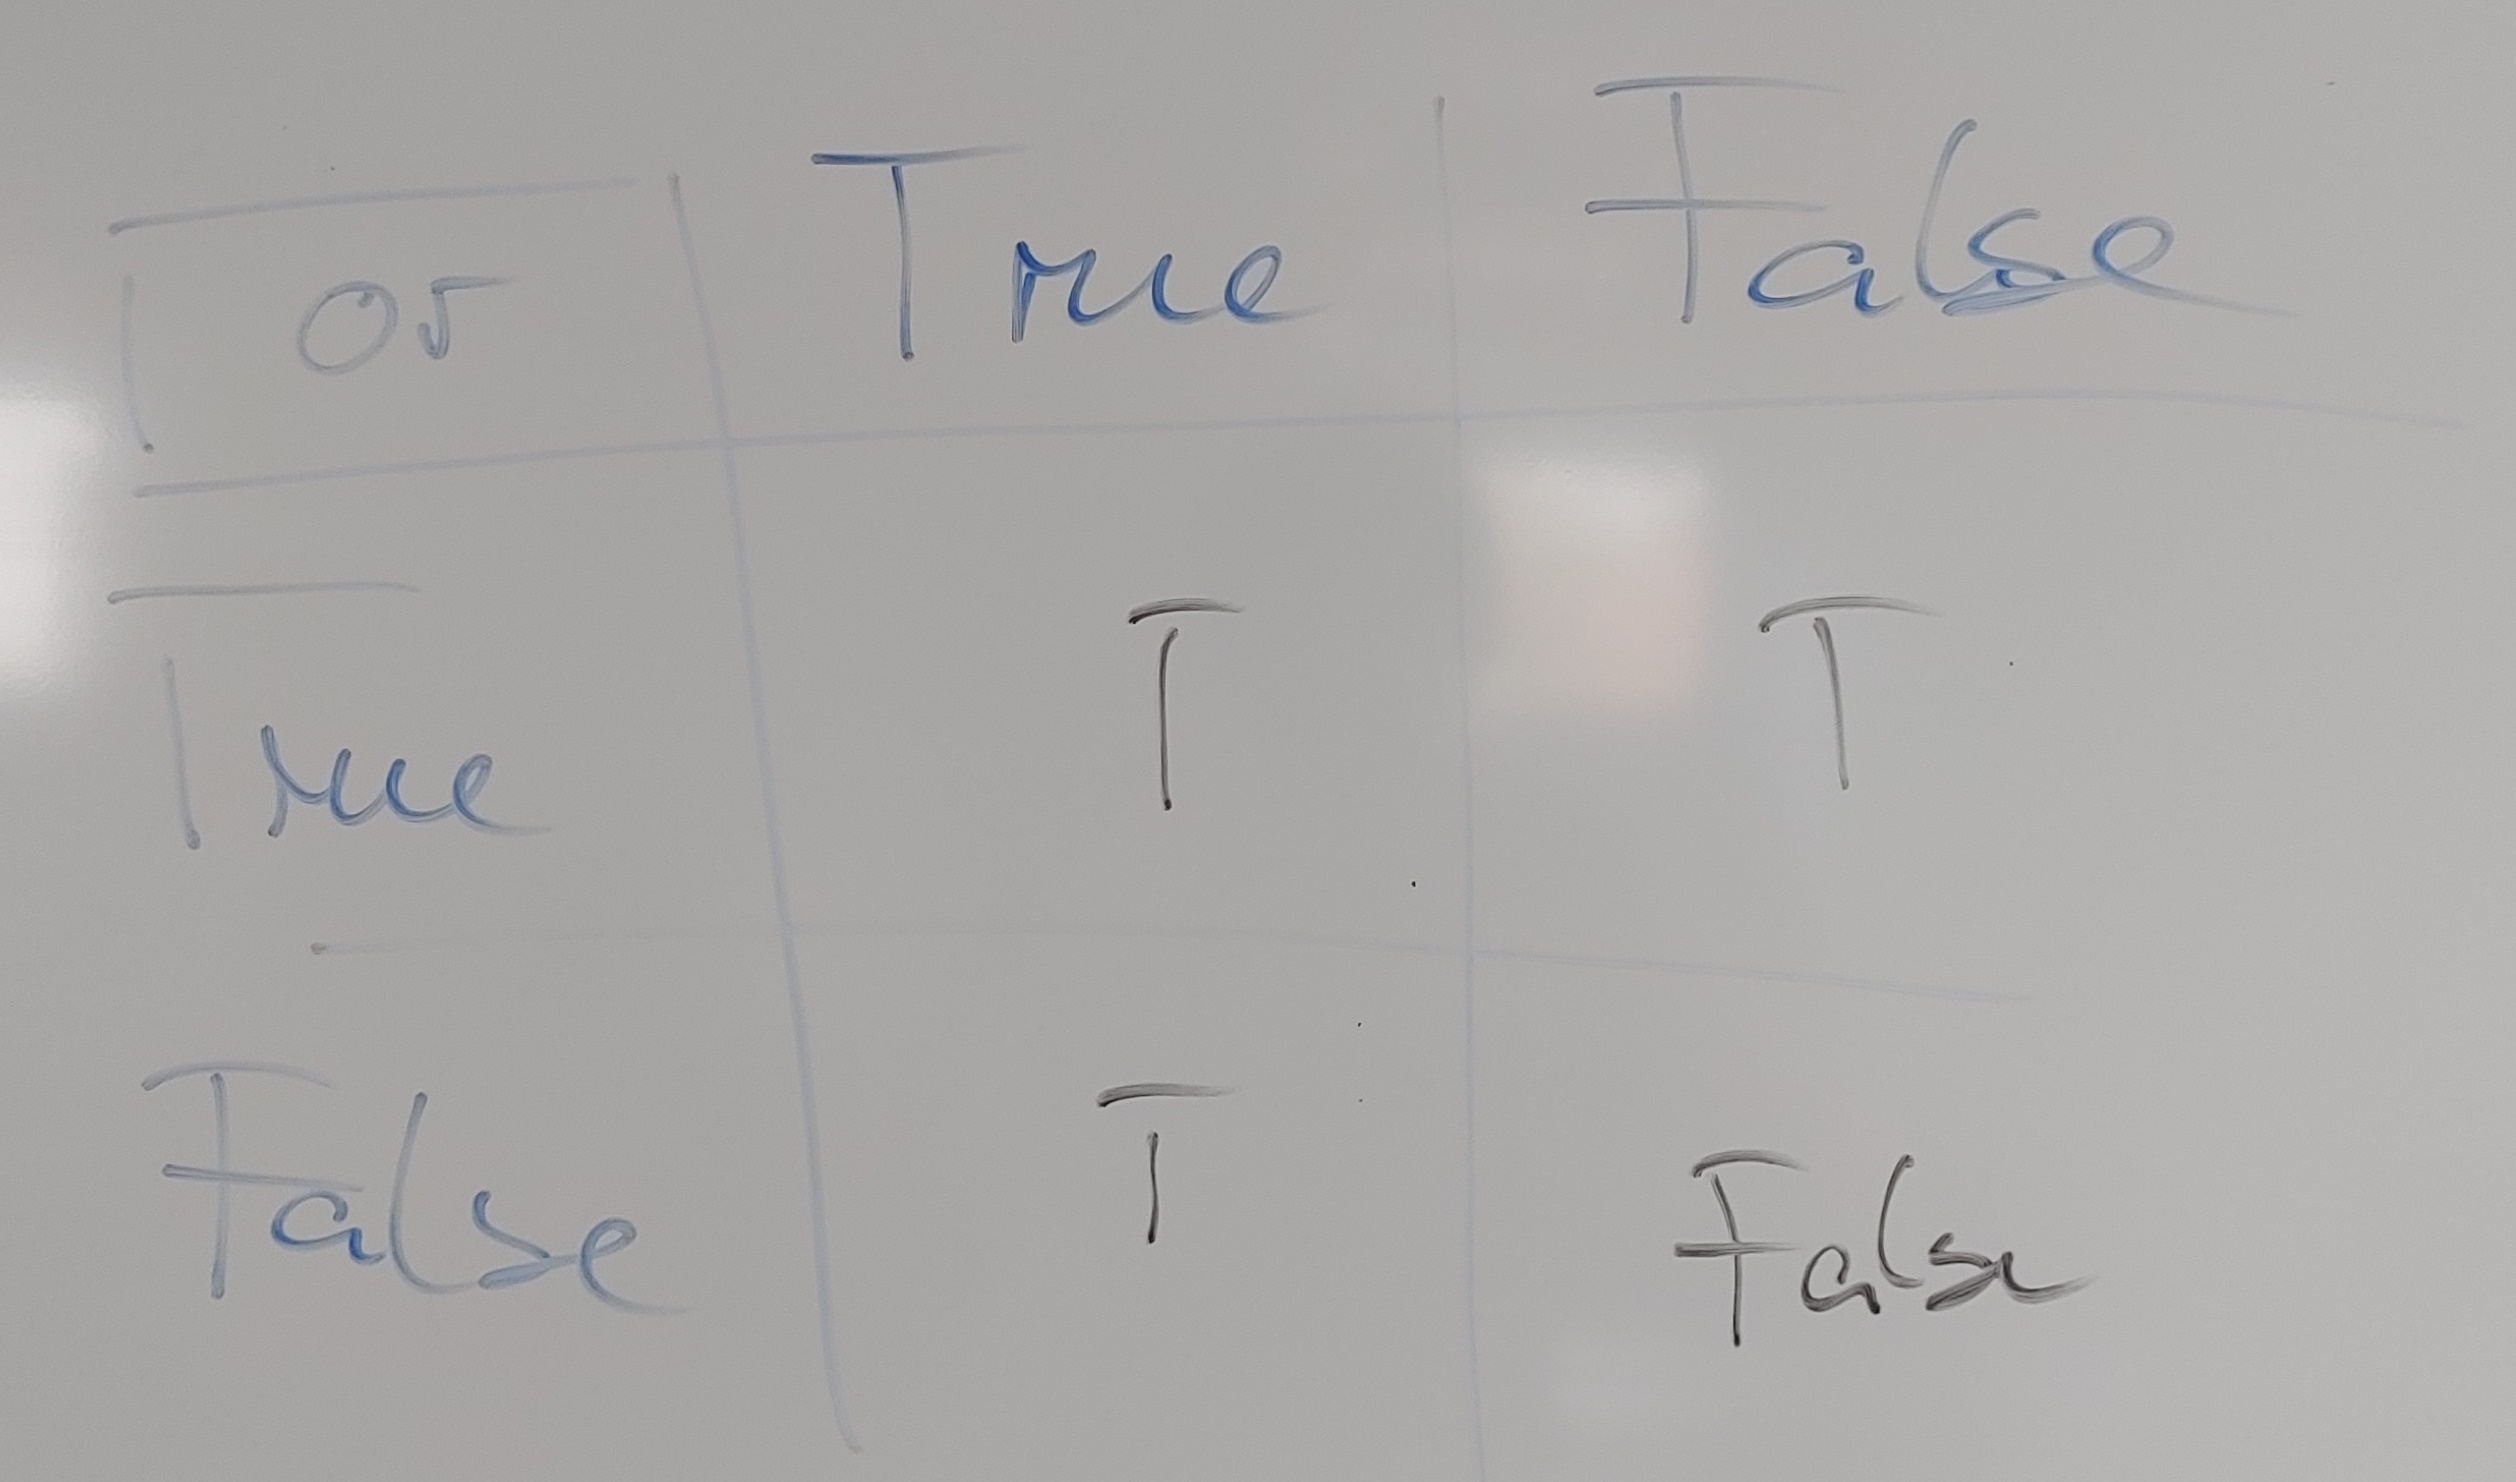 or True False
True T T
False T False